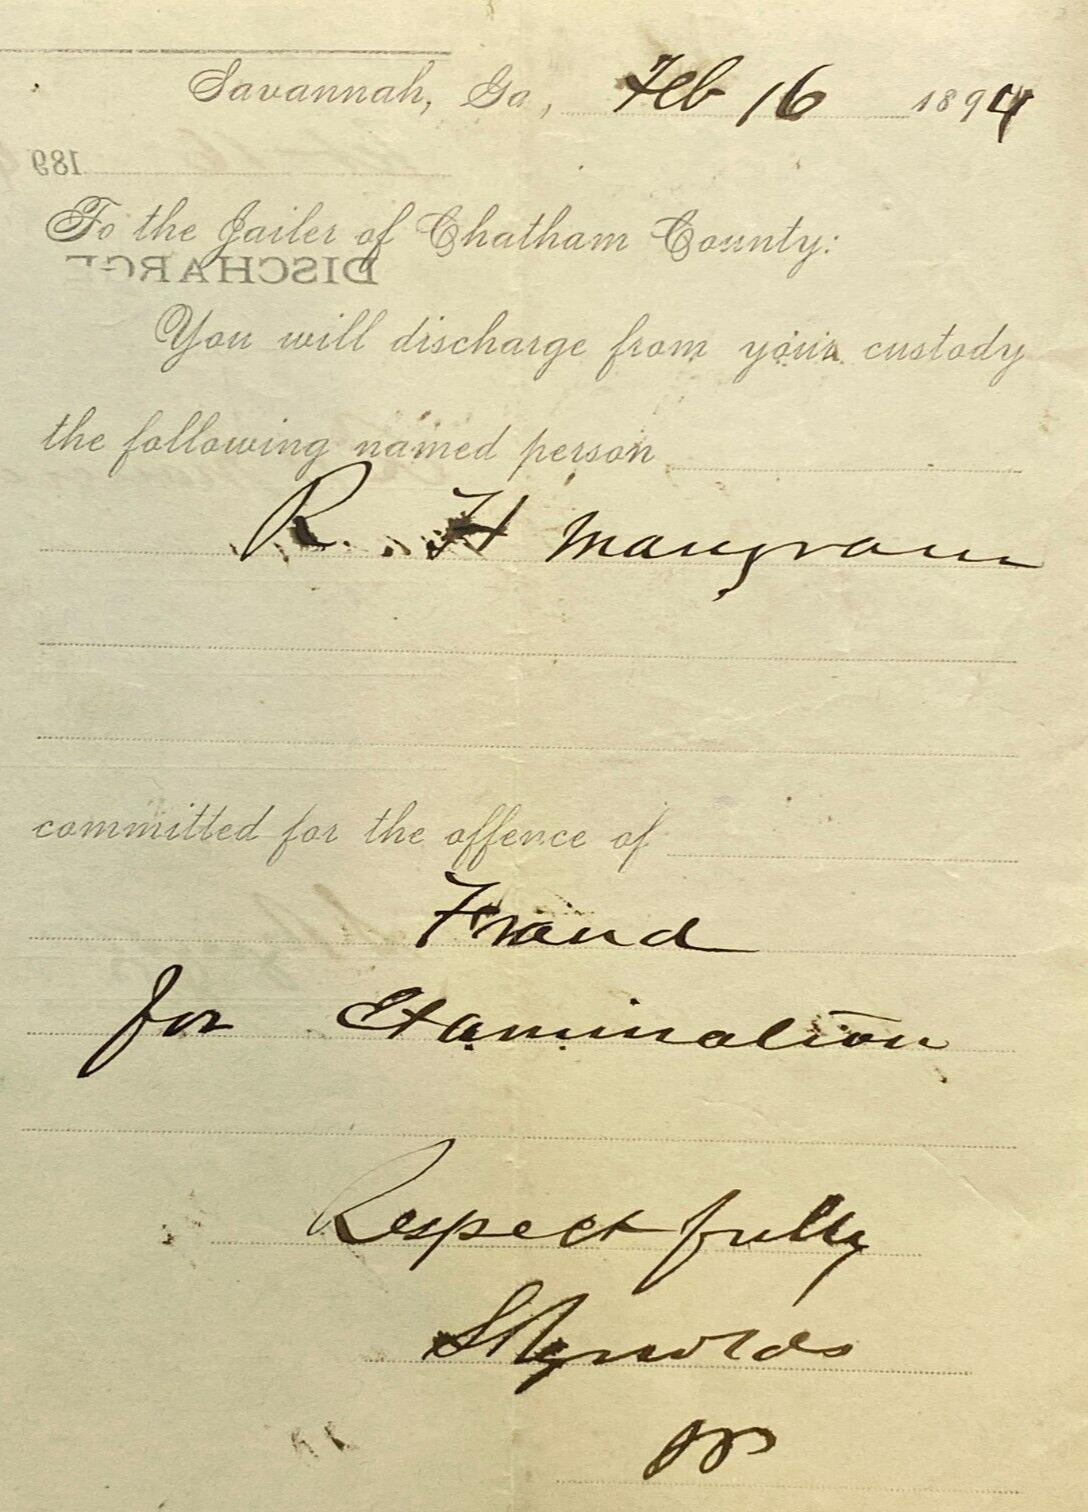 Savannah, Ga, Feb 16 1894
189
To the Jailer of Chatham County:
DISCHARGE
You will discharge from your custody
the following named person
R. H Mangram
committed for the offence of
Fraud
for Examination
Respectfully